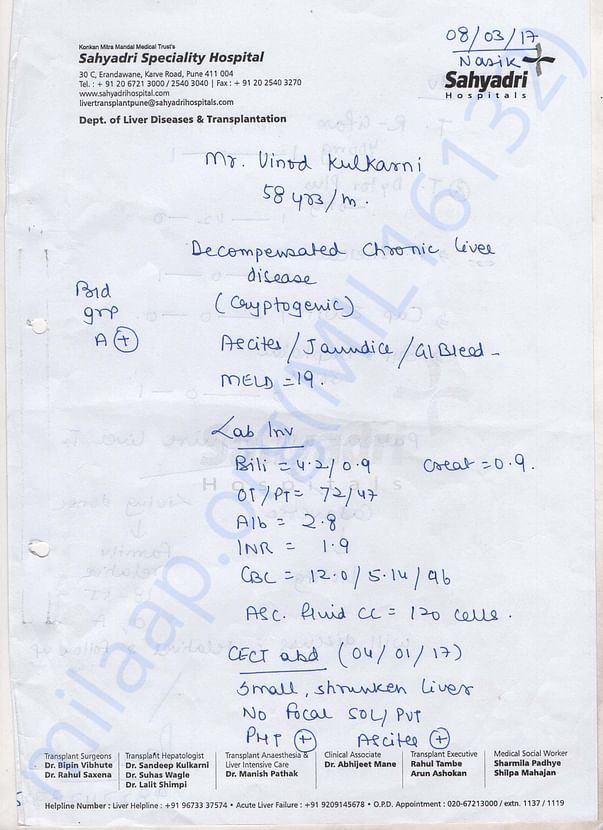 08/03/17
Nasik
Konkan Mitra Mandal Medical Trust's
Sahyadri Speciality Hospital
30 C, Erandawane, Karve Road, Pune 411 004
Tel. : + 91 20 6721 3000 / 2540 3040 | Fax : + 91 20 2540 3270
www.sahyadrihospital.com
livertransplantpune@sahyadrihospitals.com
Dept. of Liver Diseases & Transplantation
Sahyadri
Hospitals
Mr. Vinod Kulkarni
58 yrs/m.
Decompensated Chronic liver
disease
(Cryptogenic)
Bld
grp
A (+)
Ascites / Jaundice / GI Bleed -
MELD = 19.
Lab Inv
Bili = 4.2/0.9 Creat = 0.9.
OT/PT = 72/47
Alb = 2.8
INR = 1.9
CBC = 12.0 / 5.14 / 96
Asc. fluid CC = 120 cells.
CECT abd (04/01/17)
Small, shrunken liver
No focal SOL / PVT
PHT (+) Ascites (+)
milaap.org(MIL46132)
Transplant Surgeons
Dr. Bipin Vibhute
Dr. Rahul Saxena
Transplant Hepatologist
Dr. Sandeep Kulkarni
Dr. Suhas Wagle
Dr. Lalit Shimpi
Transplant Anaesthesia &
Liver Intensive Care
Dr. Manish Pathak
Clinical Associate
Dr. Abhijeet Mane
Transplant Executive
Rahul Tambe
Arun Ashokan
Medical Social Worker
Sharmila Padhye
Shilpa Mahajan
Helpline Number : Liver Helpline : +91 96733 37574 • Acute Liver Failure : +91 9209145678 • O.P.D. Appointment : 020-67213000 / extn. 1137 / 1119